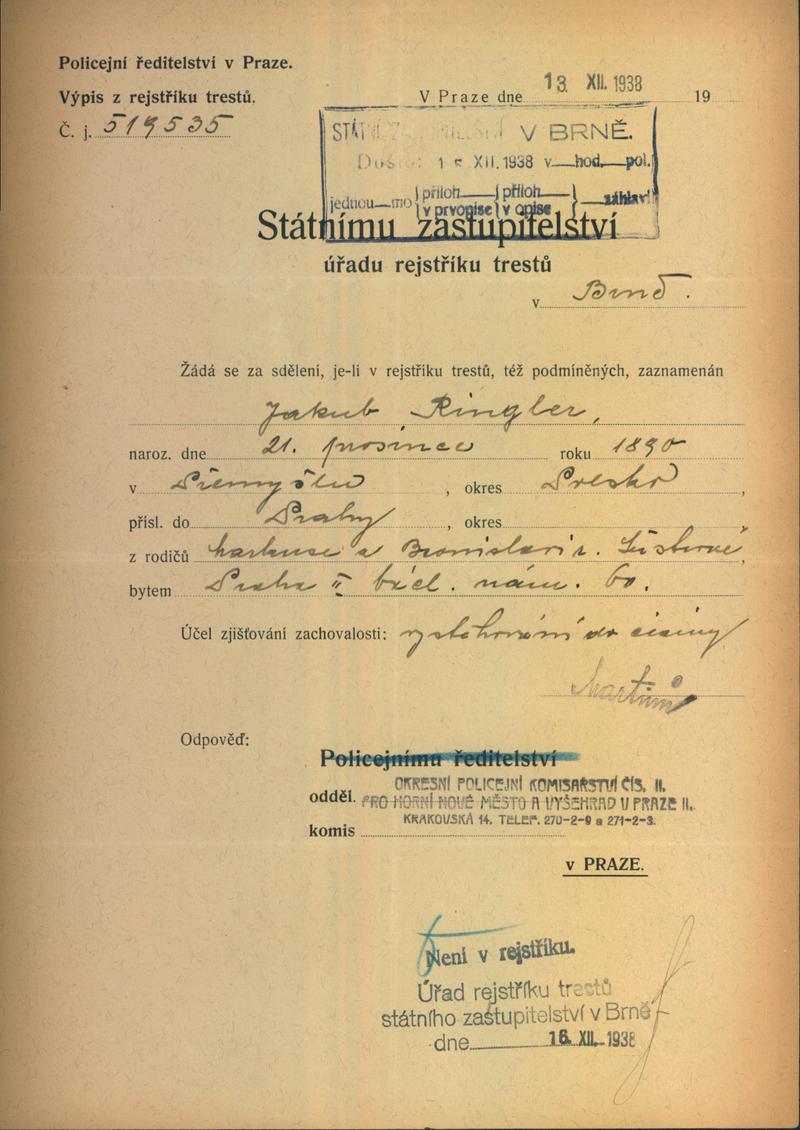 Policejní ředitelství v Praze.
Výpis z rejstříku trestů.
Č. j. 519535
V Praze dne 13. XII. 1938 19
V BRNĚ.
XII. 1938 v hod. pol.
jednou mo příloh příloh záhlaví
v prvopise v opise
Státnímu zastupitelství
úřadu rejstříku trestů
v Brně.
Žádá se za sdělení, je-li v rejstříku trestů, též podmíněných, zaznamenán
Jakub Ringler,
naroz. dne 21. prosince roku 1890
v Přemyšlu, okres Polsko,
přísl. do Prahy, okres
z rodičů Markuse a
bytem Praha nám.
Účel zjišťování zachovalosti: vystěhování do ciziny
Odpověď:
Policejnímu ředitelství
OKRESNÍ POLICEJNÍ KOMISAŘSTVÍ ČÍS. II.
odděl. PRO HORNÍ NOVÉ MĚSTO A VYŠEHRAD V PRAZE II.
KRAKOVSKÁ 14. TELEF. 270-2-9 a 271-2-3.
komis
v PRAZE.
Není v rejstříku.
Úřad rejstříku trestů
státního zastupitelství v Brně
dne 16. XII. 1938